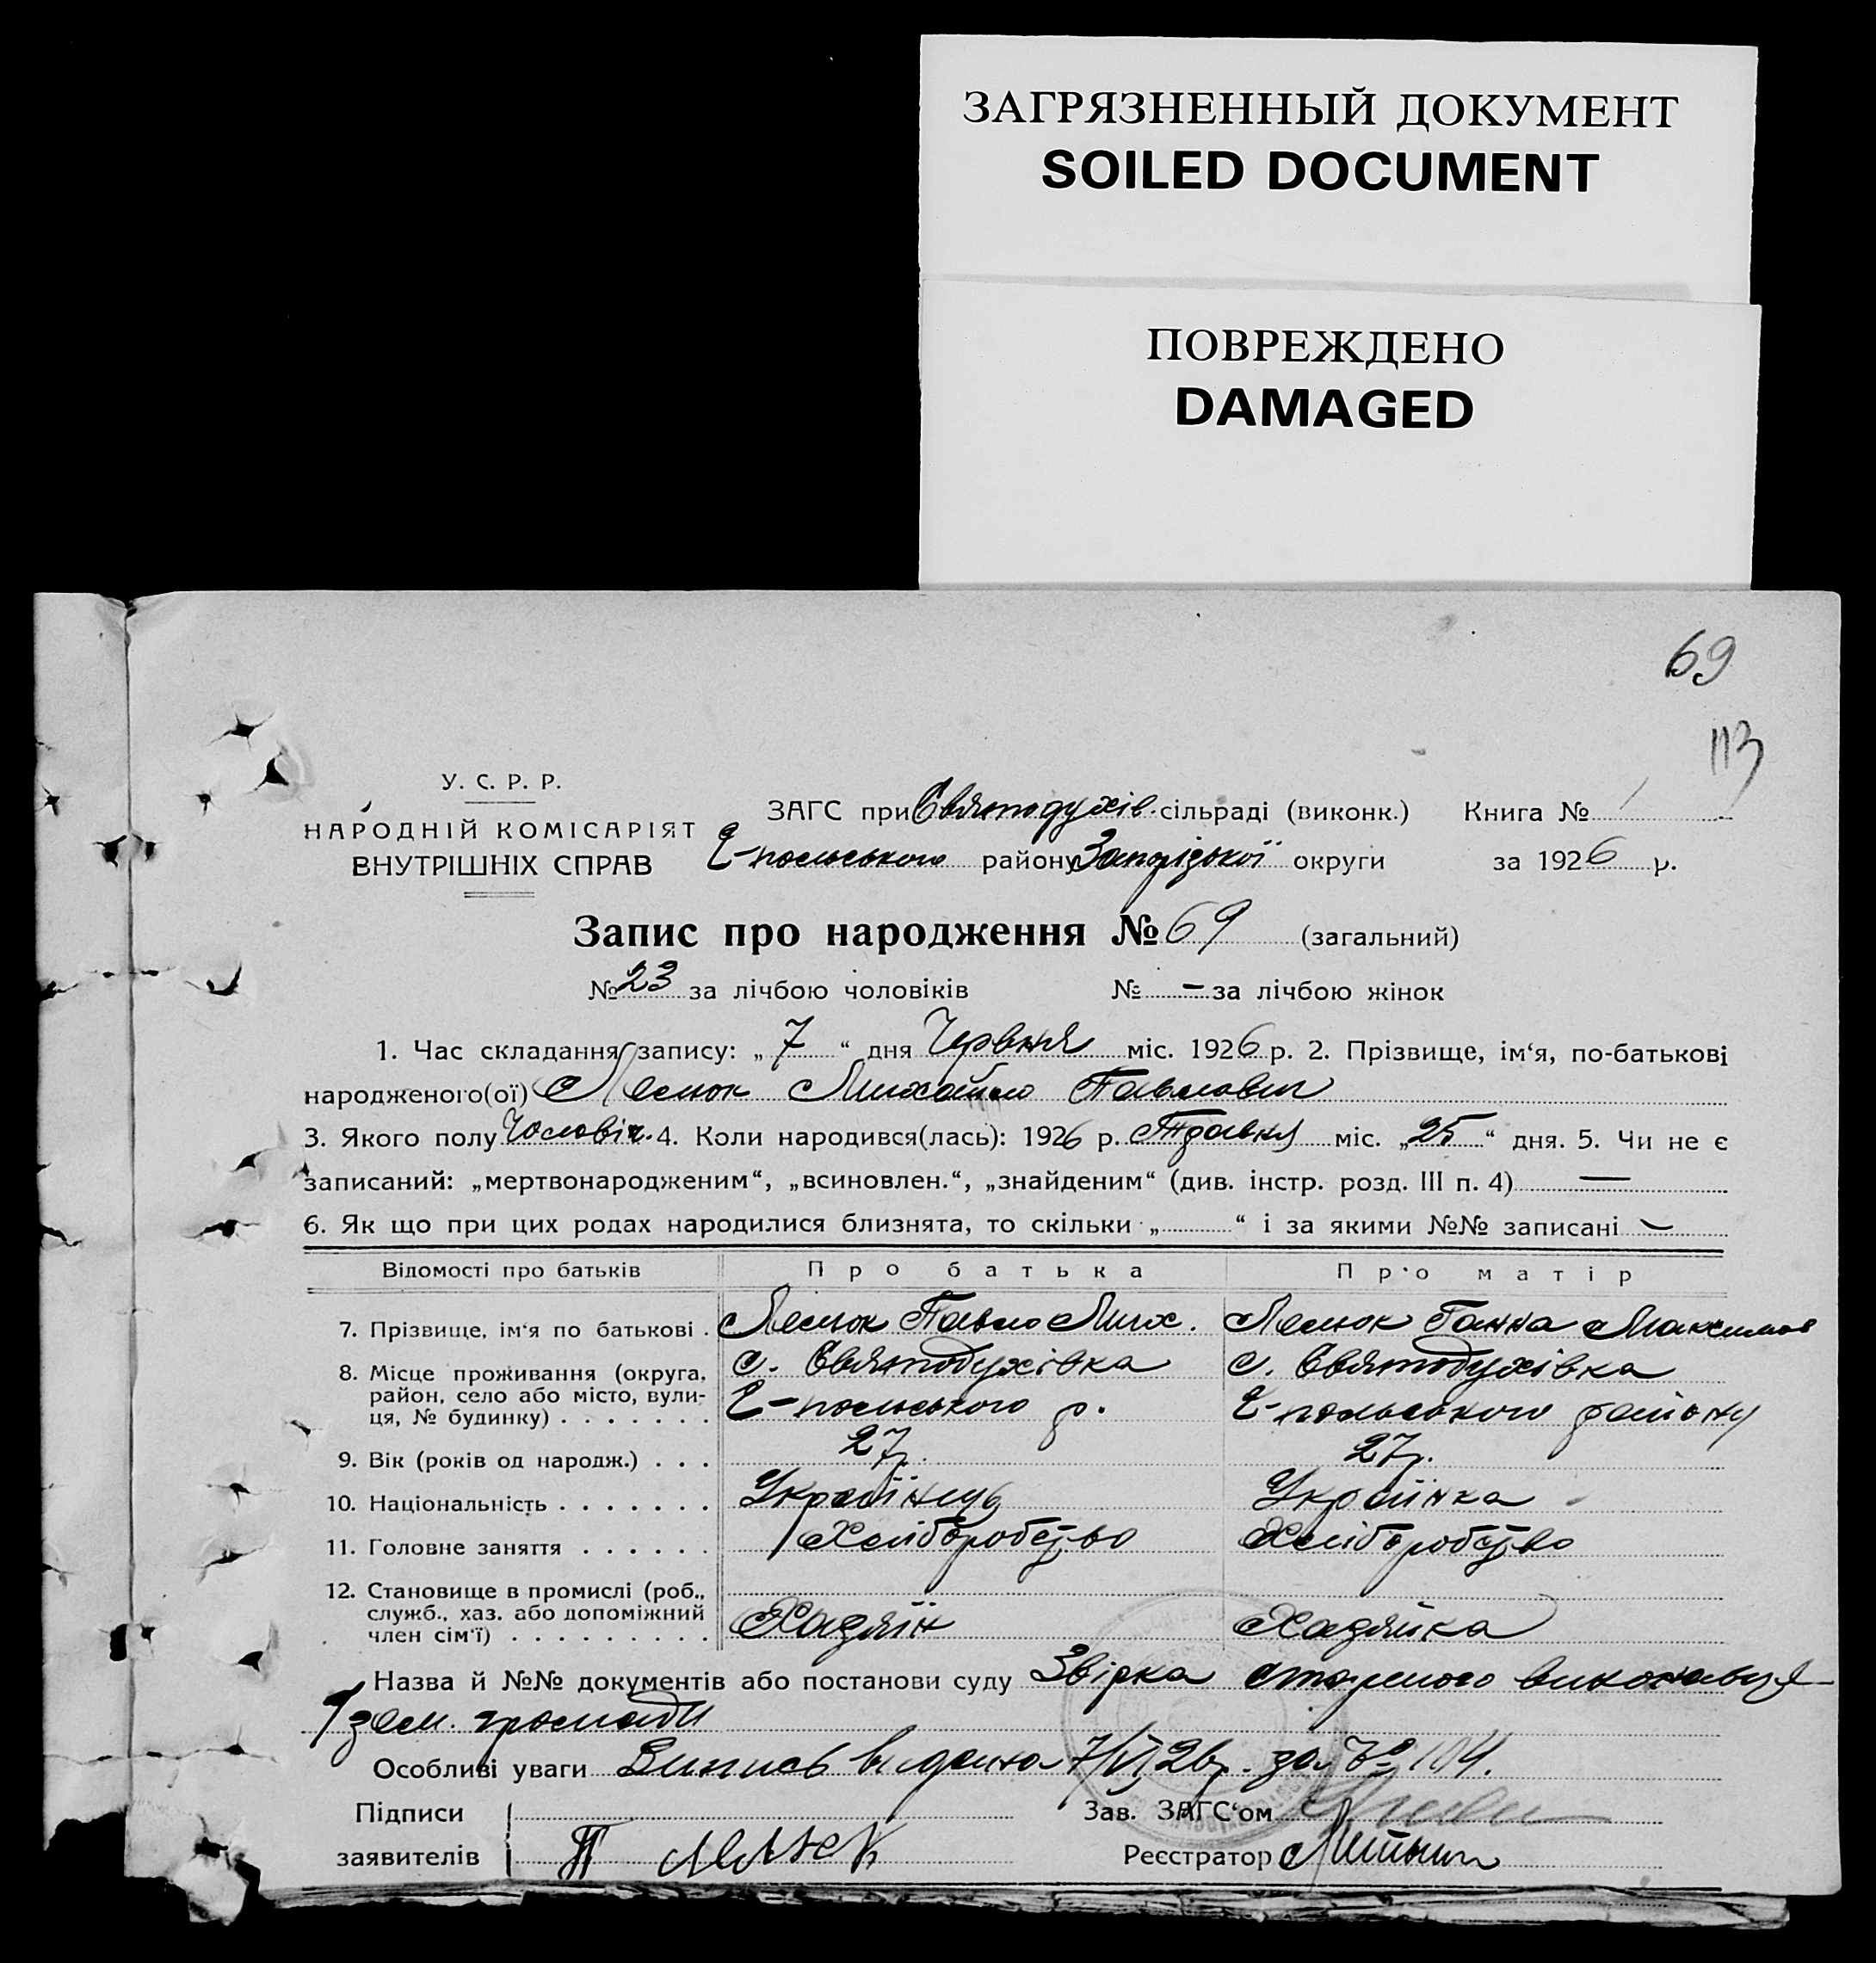 ЗАГРЯЗНЕННЫЙ ДОКУМЕНТ
SOILED DOCUMENT
ПОВРЕЖДЕНО
DAMAGED
69
113
У. С. Р. Р.
НАРОДНІЙ КОМІСАРІЯТ
ВНУТРІШНІХ СПРАВ
ЗАГС при Святодухів. сільраді (виконк.) Книга № 1
Є-польського району Запорізької округи за 1926 р.
Запис про народження № 69 (загальний)
№ 23 за лічбою чоловіків № — за лічбою жінок
1. Час складання запису: „ 7 “ дня Червня міс. 1926 р. 2. Прізвище, ім‘я, по-батькові
народженого(ої) Лелюк Михайло Павлович
3. Якого полу Чоловіч. 4. Коли народився(лась): 1926 р. Травня міс. „ 25 “ дня. 5. Чи не є
записаний: „мертвонародженим“, „всиновлен.“, „знайденим“ (див. інстр. розд. III п. 4) —
6. Як що при цих родах народилися близнята, то скільки „ “ і за якими №№ записані —
Відомості про батьків Про батька Про матір
7. Прізвище, ім‘я по батькові . Лелюк Павло Мих. Лелюк Ганна Максимов
8. Місце проживання (округа, район, село або місто, вулиця, № будинку) . . . . . . . с. Святодухівка Є-польського р. с. Святодухівка Є-польського району
9. Вік (років од народж.) . . . 27 р. 27 р.
10. Національність . . . . . . . Українець Українка
11. Головне заняття . . . . . . Хліборобство Хліборобство
12. Становище в промислі (роб., служб., хаз. або допоміжний член сім‘ї) . . . . . . . . . Хазяїн Хазяйка
Назва й №№ документів або постанови суду Звірка виконавця
зем. громади
Особливі уваги Випись видана 7/VI 26 р. за № 104.
Підписи Зав. ЗАГС‘ом
заявителів П Лелюк Реєстратор